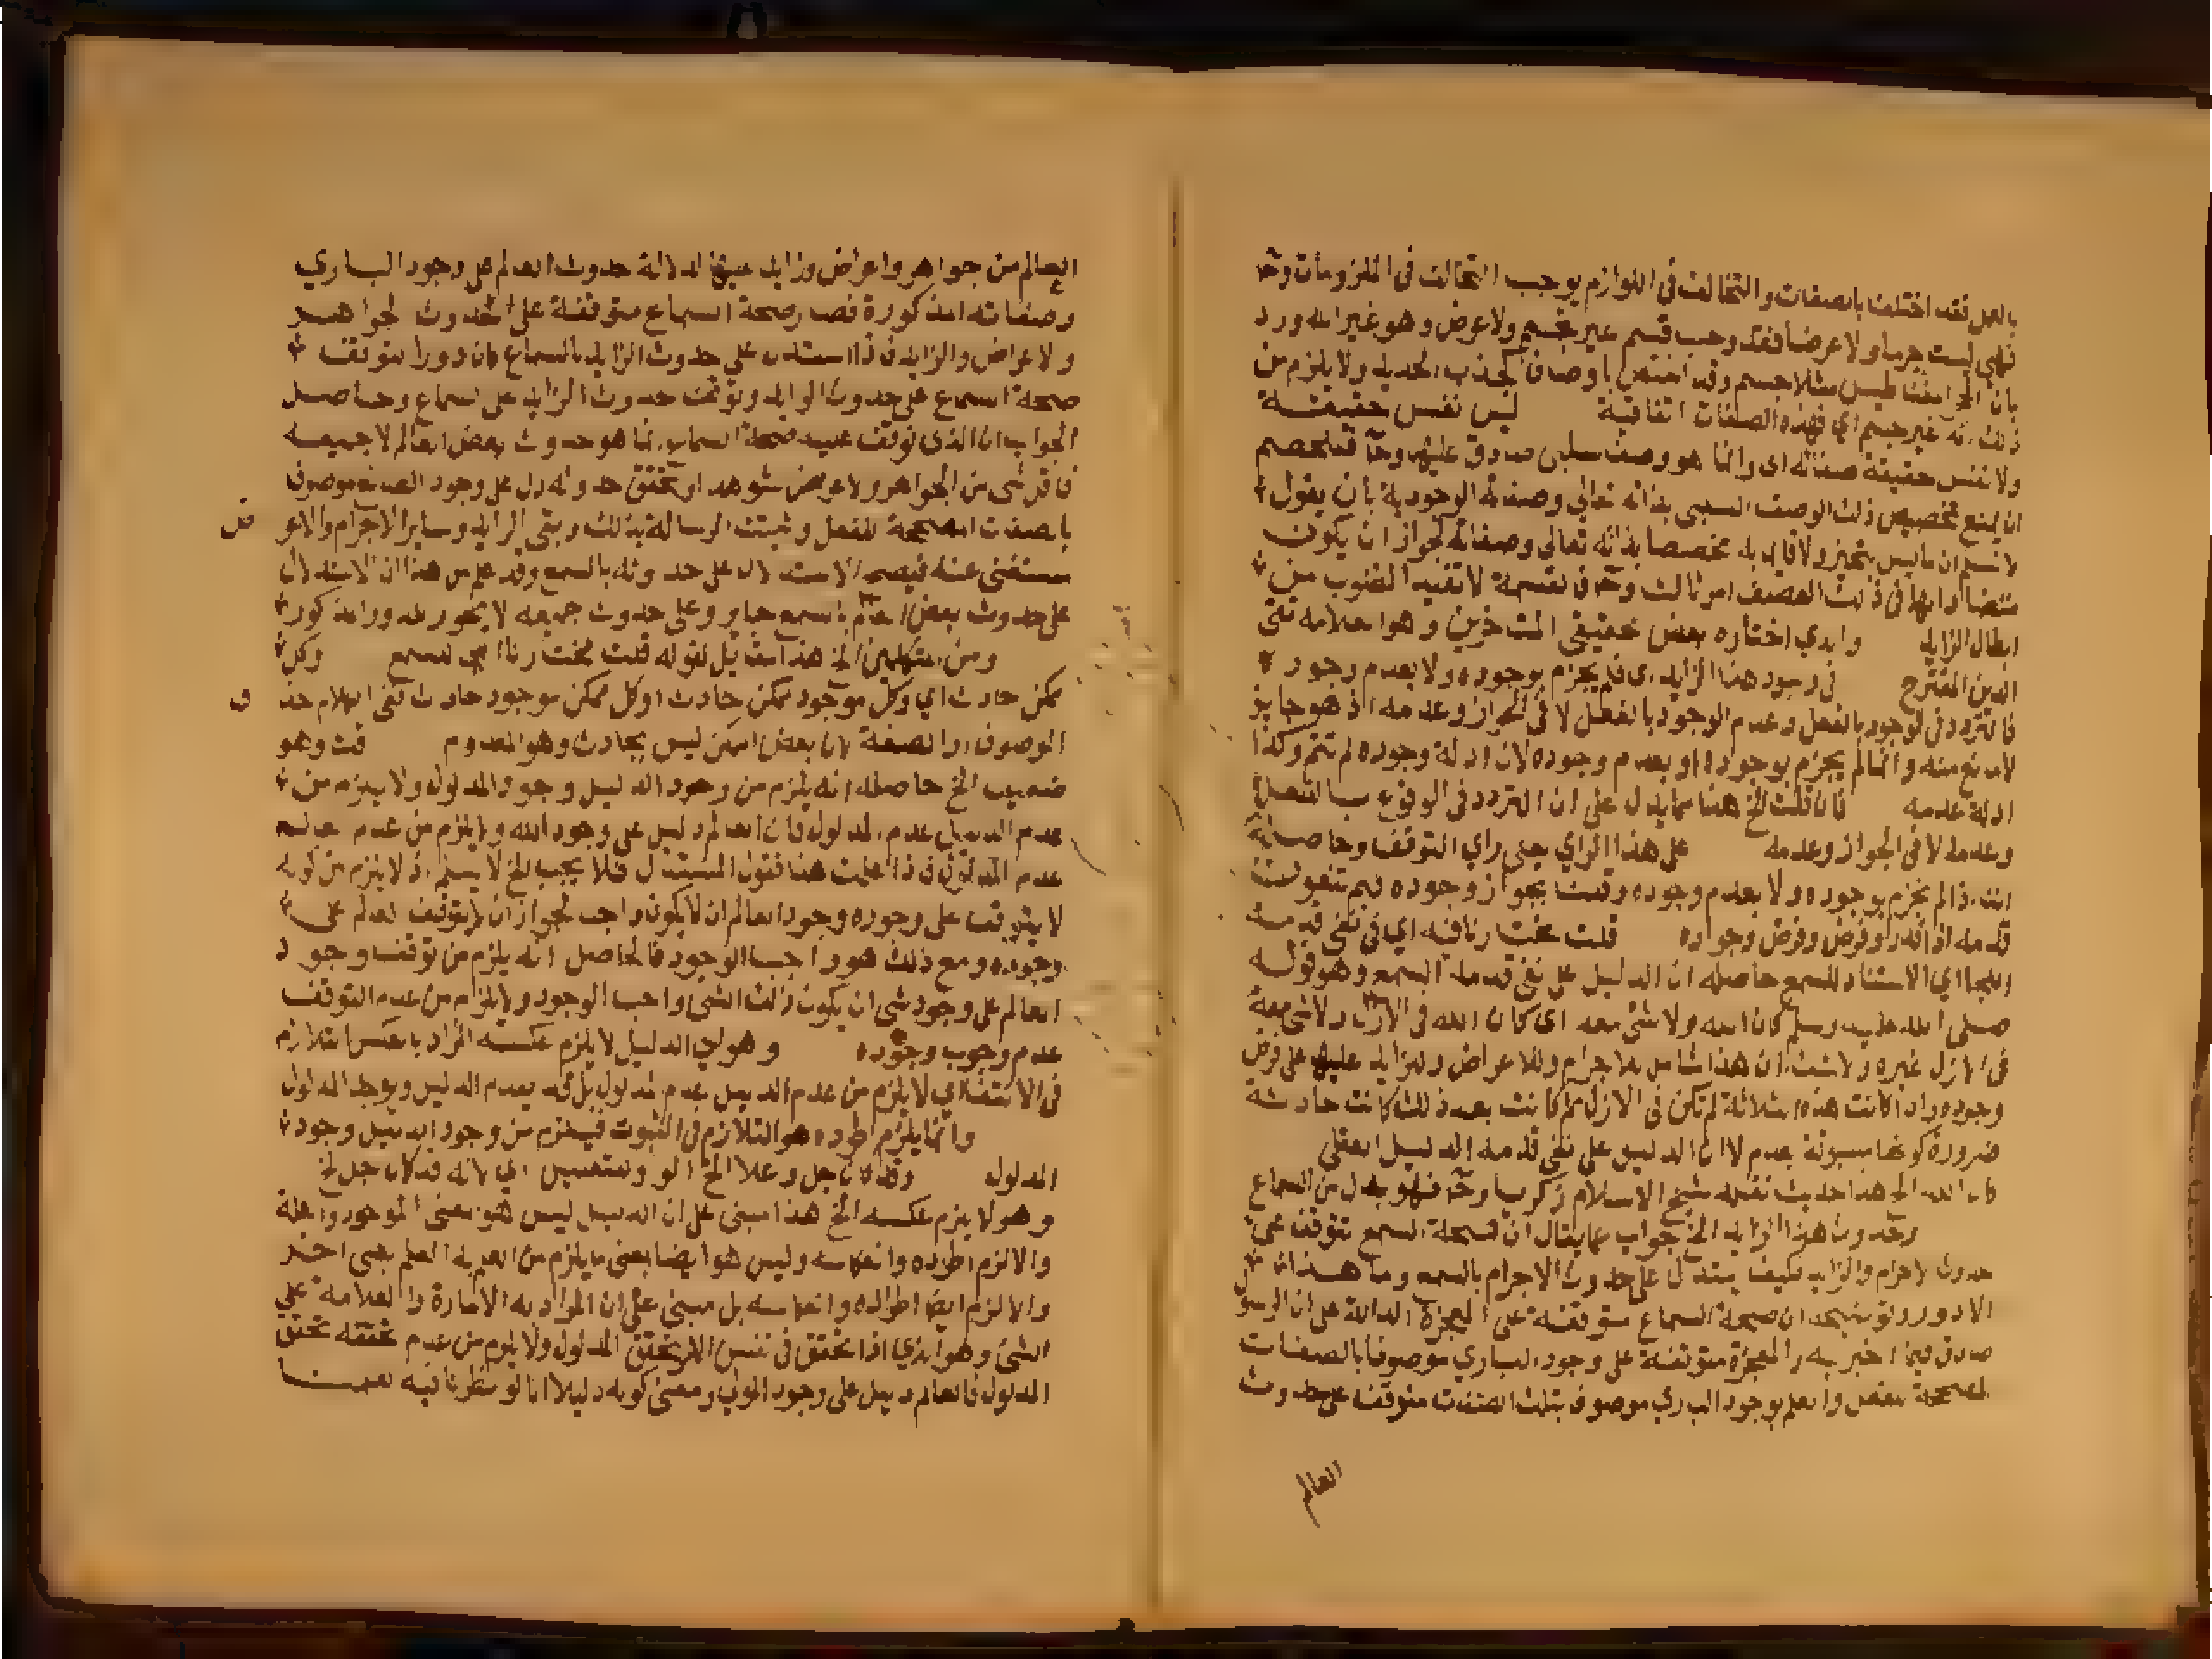 بالعقل فقد اختلفت بالصفات والتخالف في اللوازم يوجب التخالف في الملزومات وحـ
فهي ليست جرما ولا عرضا فقد وجب قسم غير جسم ولا عرض وهو غير الله ورد
بان المغناطيس مثلا جسم وقد اختص باوصاف لجذب الحديد ولا يلزم من
ذلك انه غير جسم اي فهذه الصفات اتفاقية ليس نفس حقيقته
ولا نفس حقيقة صفاته اي وانما هو وصف سلبي صادق عليها وحـ فللخصم
ان يمنع تخصيص ذلك الوصف السلبي بذاته تعالى وصفاته الوجودية بان يقول
لا نسلم ان ما ليس بمتحيز ولا قايم به مختصا بذاته تعالى وصفاته لجواز ان يكون
في ذلك الوصف امر ثالث وحـ فالقسمة لا تفيد المطلوب من
ابطال الزايد والذي اختاره بعض محققي المتاخرين وهو العلامة تقي
الدين المقترح في وجود هذا الزايد اي فلم يجزم بوجوده ولا بعدم وجوده
فالتردد في الوجود بالفعل وعدم الوجود بالفعل لا في الجواز وعدمه اذ هو جايز
لا مانع منه وانما لم يجزم بوجوده او بعدم وجوده لان ادلة وجوده لم تتم وكذا
ادلة عدمه فان قلت الخ هذا مما يدل على ان التردد في الوقوع بالفعل
وعدمه لا في الجواز وعدمه على هذا الراي يعني راي التوقف وحاصله
انت اذا لم تجزم بوجوده ولا بعدم وجوده وقلت بجواز وجوده فبم تنفون
قدمه اذا قدر وفرض وفرض وجوده قلت نختار نافيه اي في نفي قدمه
التجا اي الاستناد للسمع حاصله ان الدليل على نفي قدمه السمع وهو قوله
صلى الله عليه وسلم كان الله ولا شيء معه اي كان الله في الازل ولا شي معه
في الازل غيره ولا شك ان هذا شامل للاجرام وللاعراض وللزايد عليها على فرض
وجوده واذا كانت هذه الثلاثة لم تكن في الازل ثم كانت بعد ذلك كانت حادثة
ضرورة كونها مسبوقة بعدم لا ان الدليل على نفي قدمه الدليل العقلي
كان الله الخ هذا حديث نقله شيخ الاسلام زكريا وحـ فهو بدل من السماع
وحدوث هذا الزايد الخ جواب عما يقال ان صحة السمع تتوقف على
حدوث الاجرام والزايد فكيف يستدل على حدوث الاجرام بالسمع وما هذا
الا دور وتوضيحه ان صحة السماع متوقفة على المعجزة الدالة على ان الرسول
صادق فيما اخبر به والمعجزة متوقفة على وجود الباري موصوفا بالصفات
المصححة للفعل والعلم بوجود الباري موصوف بتلك الصفات متوقف على حدوث
العالم
العالم من جواهر واعراض وزايد عليها لدلالة حدوث العالم على وجود الباري
وصفاته المذكورة فصار صحة السماع متوقفة على حدوث الجواهر
والاعراض والزايد فاذا استدل على حدوث الزايد بالسماع كان دورا لتوقف
صحة السمع على حدوث الزايد وتوقف حدوث الزايد على السماع وحاصل
الجواب ان الذي توقف عليه صحة السماع انما هو حدوث بعض العالم لا جميعه
فاقل شي من الجواهر والاعراض شوهد او تحقق حدوثه دل على وجود الصانع موصوف
بالصفات المصححة للفعل وثبتت الرسالة بذلك وبقي الزايد وساير الاجرام والاعراض
مستغنى عنه فيصح الاستدلال على حدوثه بالسمع وقد علم من هذا ان الاستدلال
على حدوث بعض العالم بالسمع جاير وعلى حدوث جميعه لا يجوز للدور المذكور
ومن المتكلمين الخ هذا مقابل لقوله قلت نختار للسمع وكل
ممكن حادث اي وكل موجود ممكن حادث او كل ممكن موجود حادث ففي الكلام حذف
الموصوف او الصفة لان بعض الممكن ليس بحادث وهو المعدوم قلت وهو
ضعيف الخ حاصله انه يلزم من وجود الدليل وجود المدلول ولا يلزم من
عدم الدليل عدم المدلول فان العالم دليل على وجود الله ولا يلزم من عدم العالم
عدم المدلول فاذا علمت هذا فقول المستدل فلا يجب الخ لا يسلم اذ لا يلزم من كونه
لا يتوقف على وجوده وجود العالم ان لا يكون واجب لجواز ان لا يتوقف العالم على
وجوده ومع ذلك هو واجب الوجود فالحاصل انه يلزم من توقف وجود
العالم على وجود شي ان يكون ذلك الشي واجب الوجود ولا يلزم من عدم التوقف
عدم وجوب وجوده وهو اي الدليل لا يلزم عكسه المراد بالعكس التلازم
في الانتفا اي لا يلزم من عدم الدليل عدم المدلول بل قد يعدم الدليل ويوجد المدلول
وانما يلزم اطرده هو التلازم في الثبوت فيلزم من وجود الدليل وجود
المدلول وقد كان جل وعلا الخ الواو للتعليل اي لانه قد كان جل الخ
وهو لا يلزم عكسه الخ هذا مبني على ان الدليل ليس هو بمعنى الموجود والعلة
والا لزم اطرده وانعكاسه وليس هو ايضا بمعنى ما يلزم من العلم به العلم بشي اخر
والا لزم ايضا اطراده وانعكاسه بل مبني على ان المراد به الامارة والعلامة على
الشي وهو الذي اذا تحقق في نفس الامر تحقق المدلول ولا يلزم من عدم تحققه تحقق
المدلول فالعالم دليل على وجود المولى ومعنى كونه دليلا انا لو نظرنا فيه لعلمنا